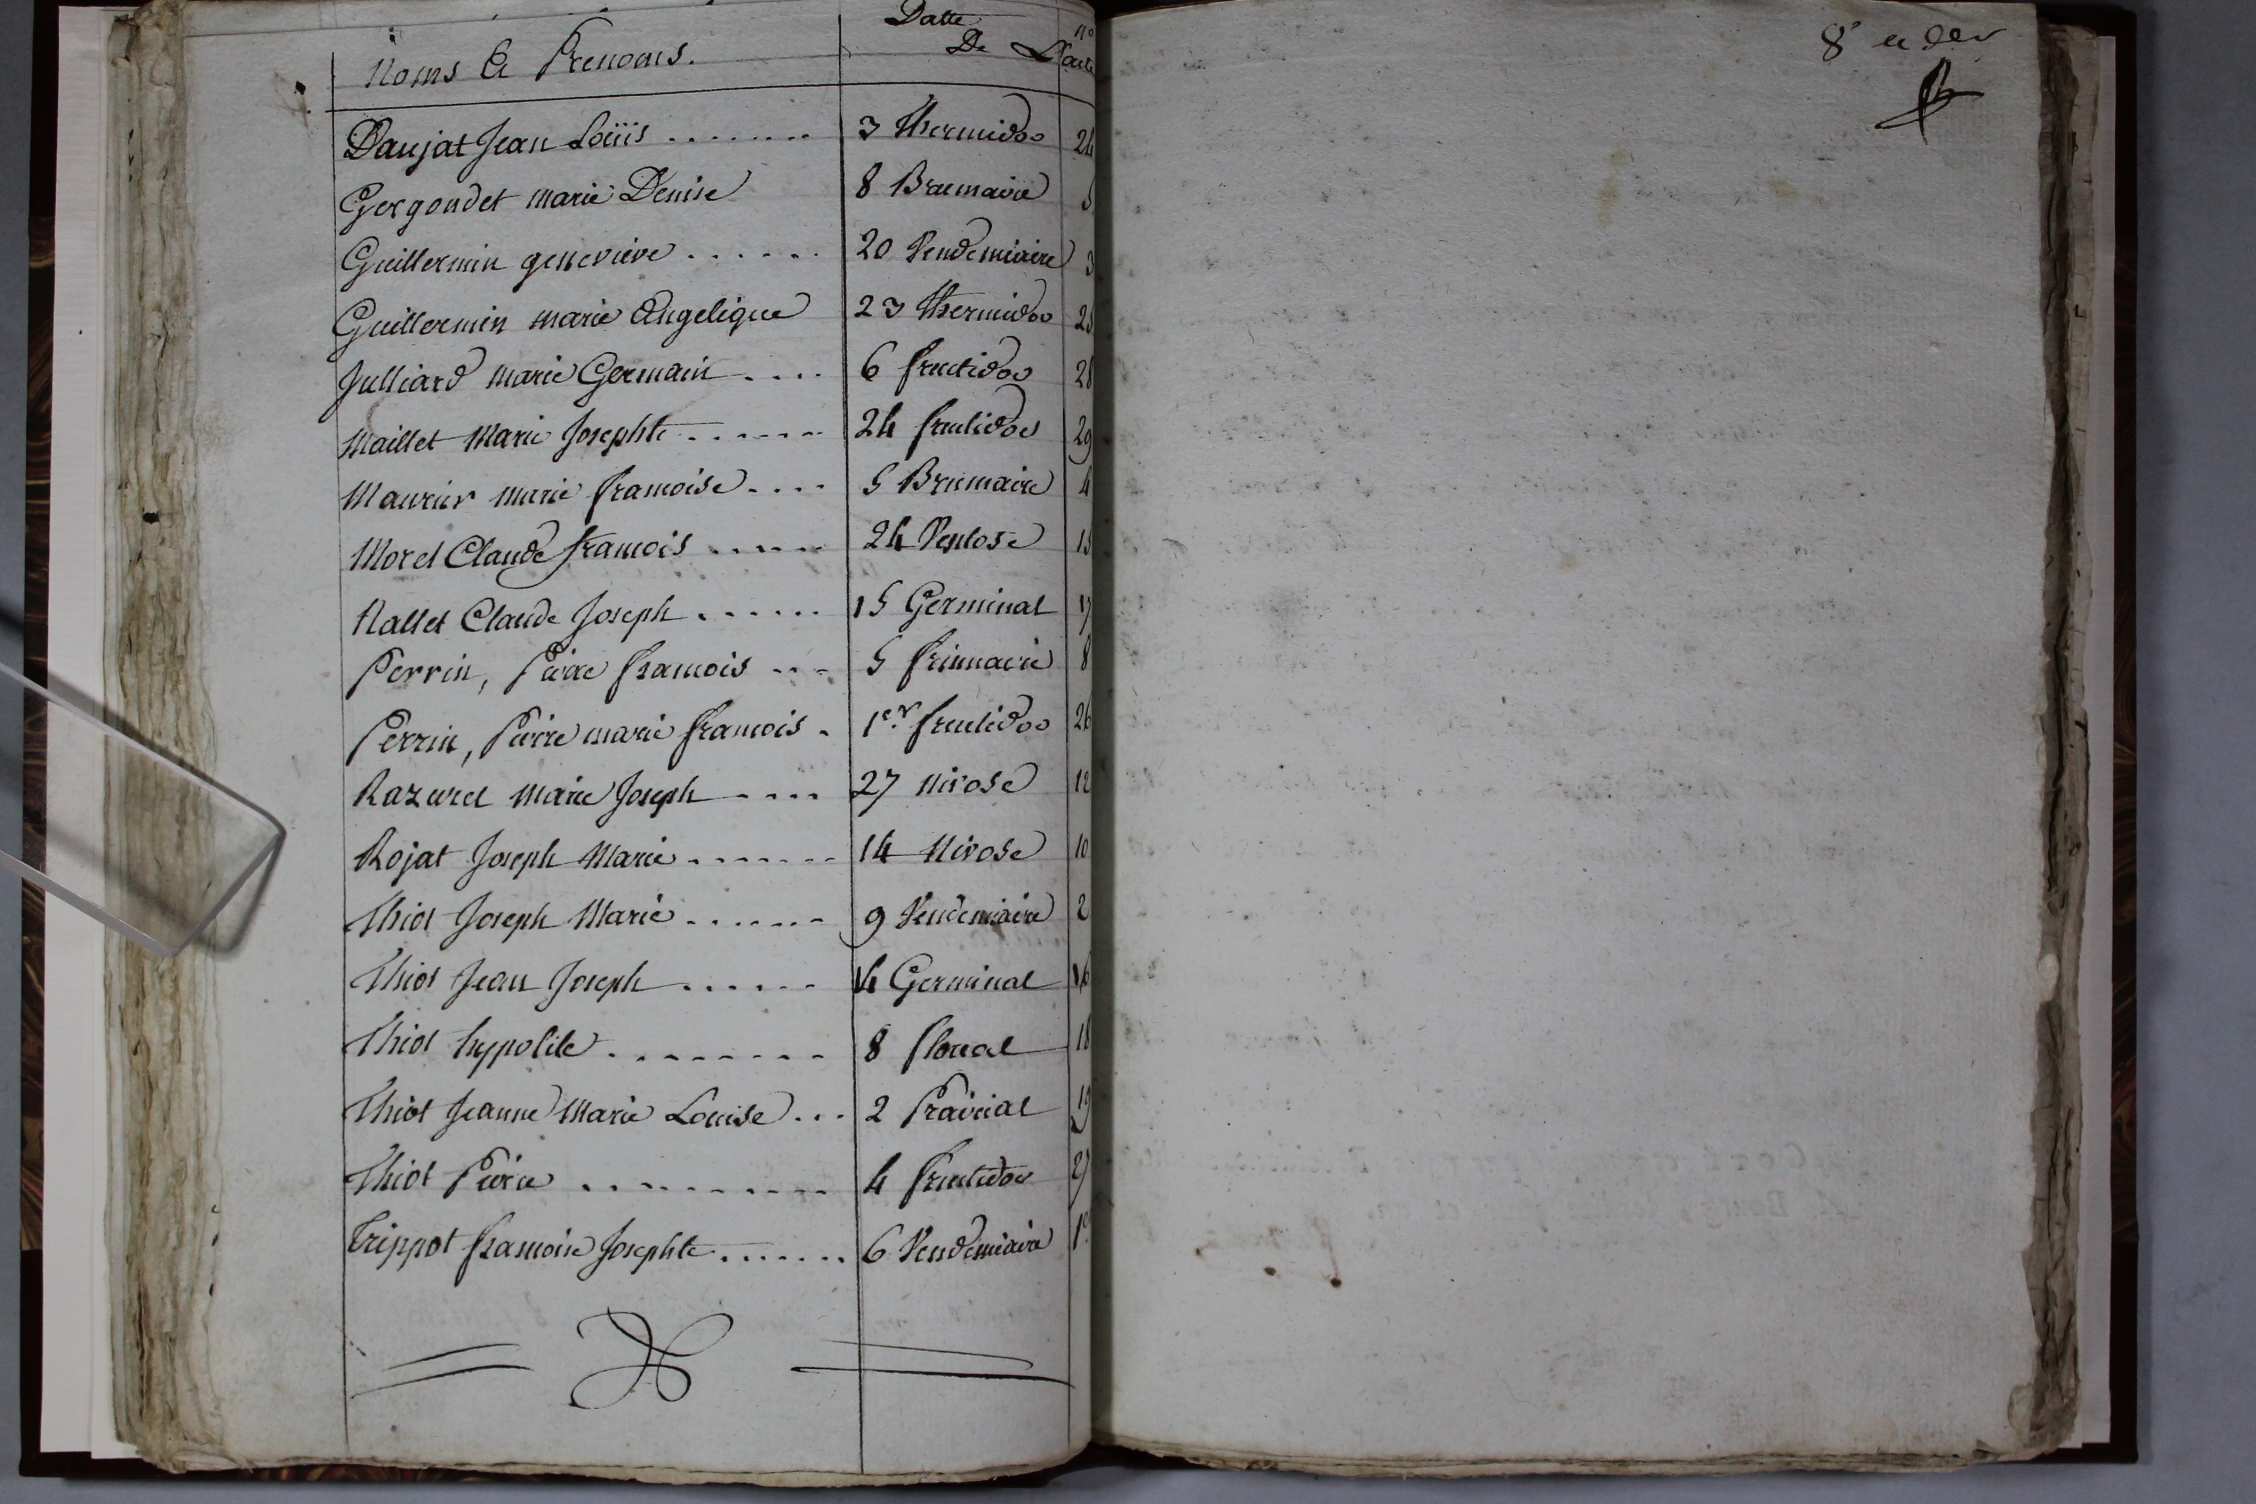 Noms Et Prenoms. Datte De L'acte n°
Daujat Jean Loüis ....... 3 Thermidor 24
Gergondet marie Denise 8 Brumaire 5
Guillermin genevieve ...... 20 Vendemiaire 3
Guillermin marie Angelique 23 Thermidor 25
Julliard marie Germain .... 6 fructidor 28
Maillet Marie Josephte ...... 24 fructidor 29
Maurier marie francoise .... 5 Brumaire 4
Morel Claude francois ..... 24 Ventose 15
Nallet Claude Joseph ...... 15 Germinal 17
Perrin, Pierre francois ... 5 frimaire 8
Perrin, Pierre marie francois . 1er fructidor 26
Razurel Marie Joseph .... 27 Nivose 12
Rojat Joseph Marie ....... 14 Nivose 10
Thiot Joseph Marie ...... 9 Vendemiaire 2
Thiot Jean Joseph ...... 4 Germinal 16
Thiot hypolite ........ 8 floreal 18
Thiot Jeanne Marie Louise ... 2 Prairial 19
Thiot Pierre ......... 4 fructidor 27
Trippot francoise Josephte ....... 6 Vendemiaire 1er
8e et der